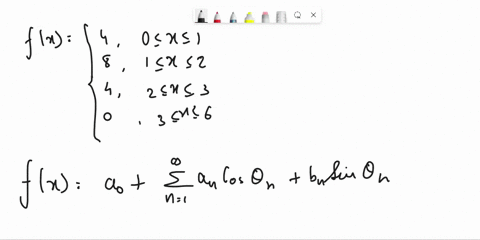 f(x): { 4, 0 ≤ x ≤ 1
8, 1 ≤ x ≤ 2
4, 2 ≤ x ≤ 3
0, 3 ≤ x ≤ 6
f(x): a₀ + ∑_{n=1}^{∞} aₙ Cos θₙ + bₙ Sin θₙ